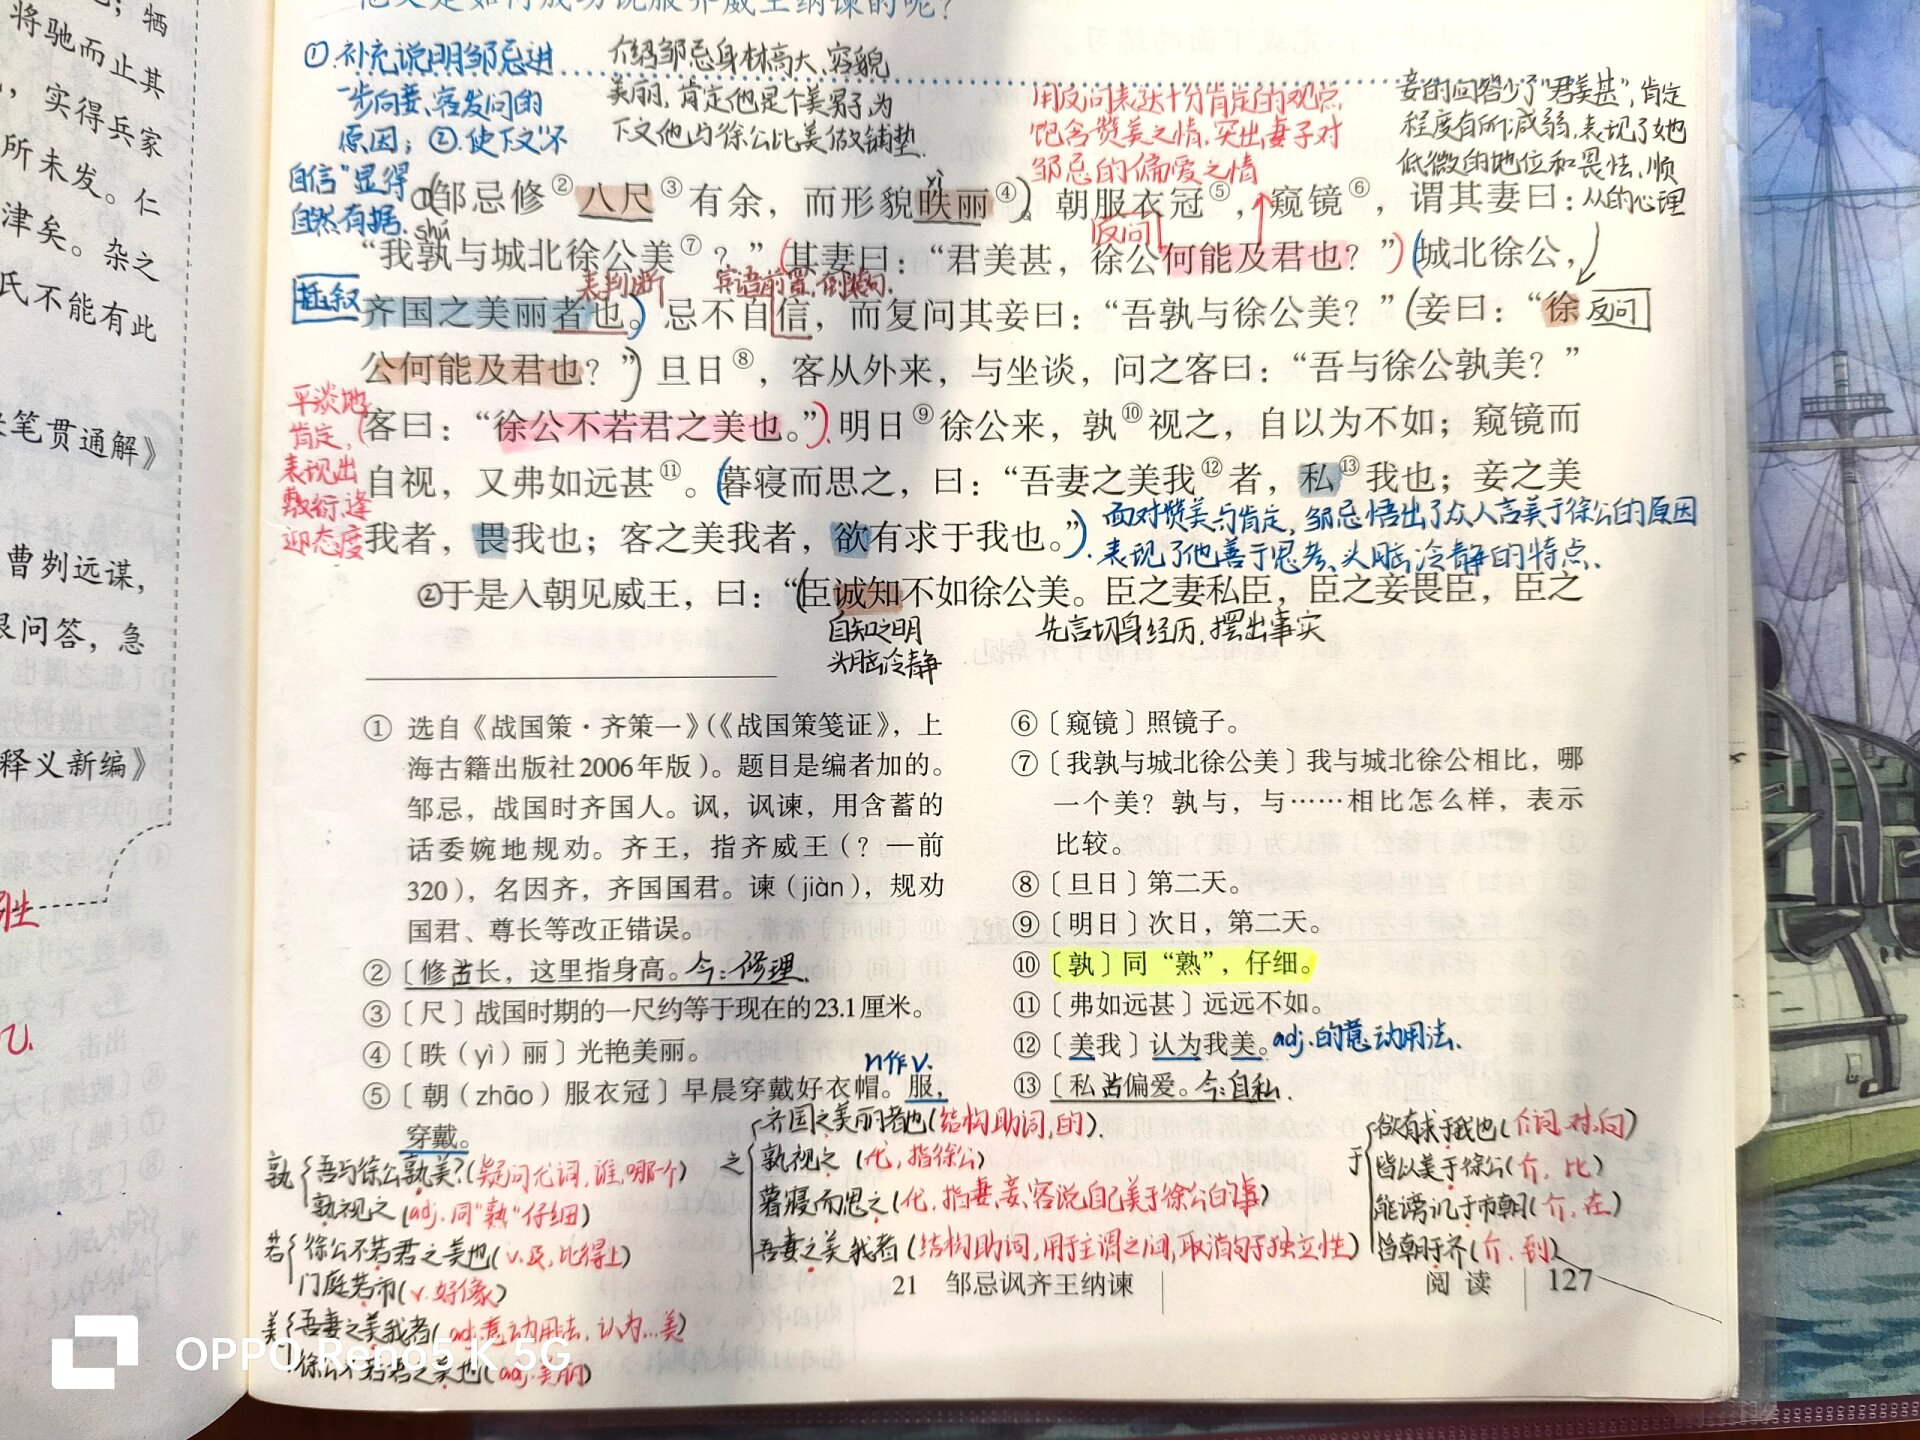 他又是如何成功说服齐威王纳谏的呢？
①.补充说明邹忌进
一步向妾、客发问的
原因；②.使下文“不
自信”显得
自然有据.
介绍邹忌身材高大、容貌
美丽，肯定他是个美男子,为
下文他与徐公比美做铺垫.
用反问表达十分肯定的观点,
饱含赞美之情,突出妻子对
邹忌的偏爱之情
妾的回答少了“君美甚”,肯定
程度有所减弱,表现了她
低微的地位和畏怯、顺
从的心理
yì
①(邹忌修②八尺③有余，而形貌昳丽④)。朝服衣冠⑤，窥镜⑥，谓其妻曰：
shú
反问
“我孰与城北徐公美⑦？”(其妻曰：“君美甚，徐公何能及君也？”)(城北徐公，
表判断
宾语前置,倒装句.
插叙
齐国之美丽者也。)忌不自信，而复问其妾曰：“吾孰与徐公美？”(妾曰：“徐
反问
公何能及君也？”)旦日⑧，客从外来，与坐谈，问之客曰：“吾与徐公孰美？”
平淡地
肯定,
表现出
敷衍、逢
迎态度
(客曰：“徐公不若君之美也。”)明日⑨徐公来，孰⑩视之，自以为不如；窥镜而
自视，又弗如远甚⑪。(暮寝而思之，曰：“吾妻之美我⑫者，私⑬我也；妾之美
我者，畏我也；客之美我者，欲有求于我也。”)
面对赞美与肯定,邹忌悟出了众人言美于徐公的原因
表现了他善于思考、头脑冷静的特点.
②于是入朝见威王，曰：“(臣诚知不如徐公美。臣之妻私臣，臣之妾畏臣，臣之
自知之明
头脑冷静
先言切身经历,摆出事实
① 选自《战国策·齐策一》（《战国策笺证》，上
海古籍出版社2006年版）。题目是编者加的。
邹忌，战国时齐国人。讽，讽谏，用含蓄的
话委婉地规劝。齐王，指齐威王（？—前
320），名因齐，齐国国君。谏（jiàn），规劝
国君、尊长等改正错误。
② 〔修古长，这里指身高。今：修理.
③ 〔尺〕战国时期的一尺约等于现在的23.1厘米。
④ 〔昳（yì）丽〕光艳美丽。
n作v.
⑤ 〔朝（zhāo）服衣冠〕早晨穿戴好衣帽。服，
穿戴。
⑥ 〔窥镜〕照镜子。
⑦ 〔我孰与城北徐公美〕我与城北徐公相比，哪
一个美？孰与，与……相比怎么样，表示
比较。
⑧ 〔旦日〕第二天。
⑨ 〔明日〕次日，第二天。
⑩ 〔孰〕同“熟”，仔细。
⑪ 〔弗如远甚〕远远不如。
⑫ 〔美我〕认为我美。adj.的意动用法.
⑬ 〔私古偏爱。今:自私.
孰
吾与徐公孰美?(疑问代词,谁,哪个)
孰视之(adj.同“熟”仔细)
若
徐公不若君之美也(v.及,比得上)
门庭若市(v.好像)
美
吾妻之美我者(adj.意动用法,认为...美)
徐公不若君之美也(adj.美丽)
之
齐国之美丽者也(结构助词,的).
孰视之(代,指徐公)
暮寝而思之(代,指妻、妾、客说自己美于徐公的事)
吾妻之美我者(结构助词,用于主谓之间,取消句子独立性)
于
欲有求于我也(介词.对,向)
皆以美于徐公(介,比)
能谤讥于市朝(介,在)
皆朝于齐(介.到)
21 邹忌讽齐王纳谏
阅读 127
将驰而止其
，实得兵家
所未发。仁
津矣。杂之
氏不能有此
笔贯通解》
曹刿远谋，
问答，急
释义新编》
胜
OPPO Reno5 K 5G